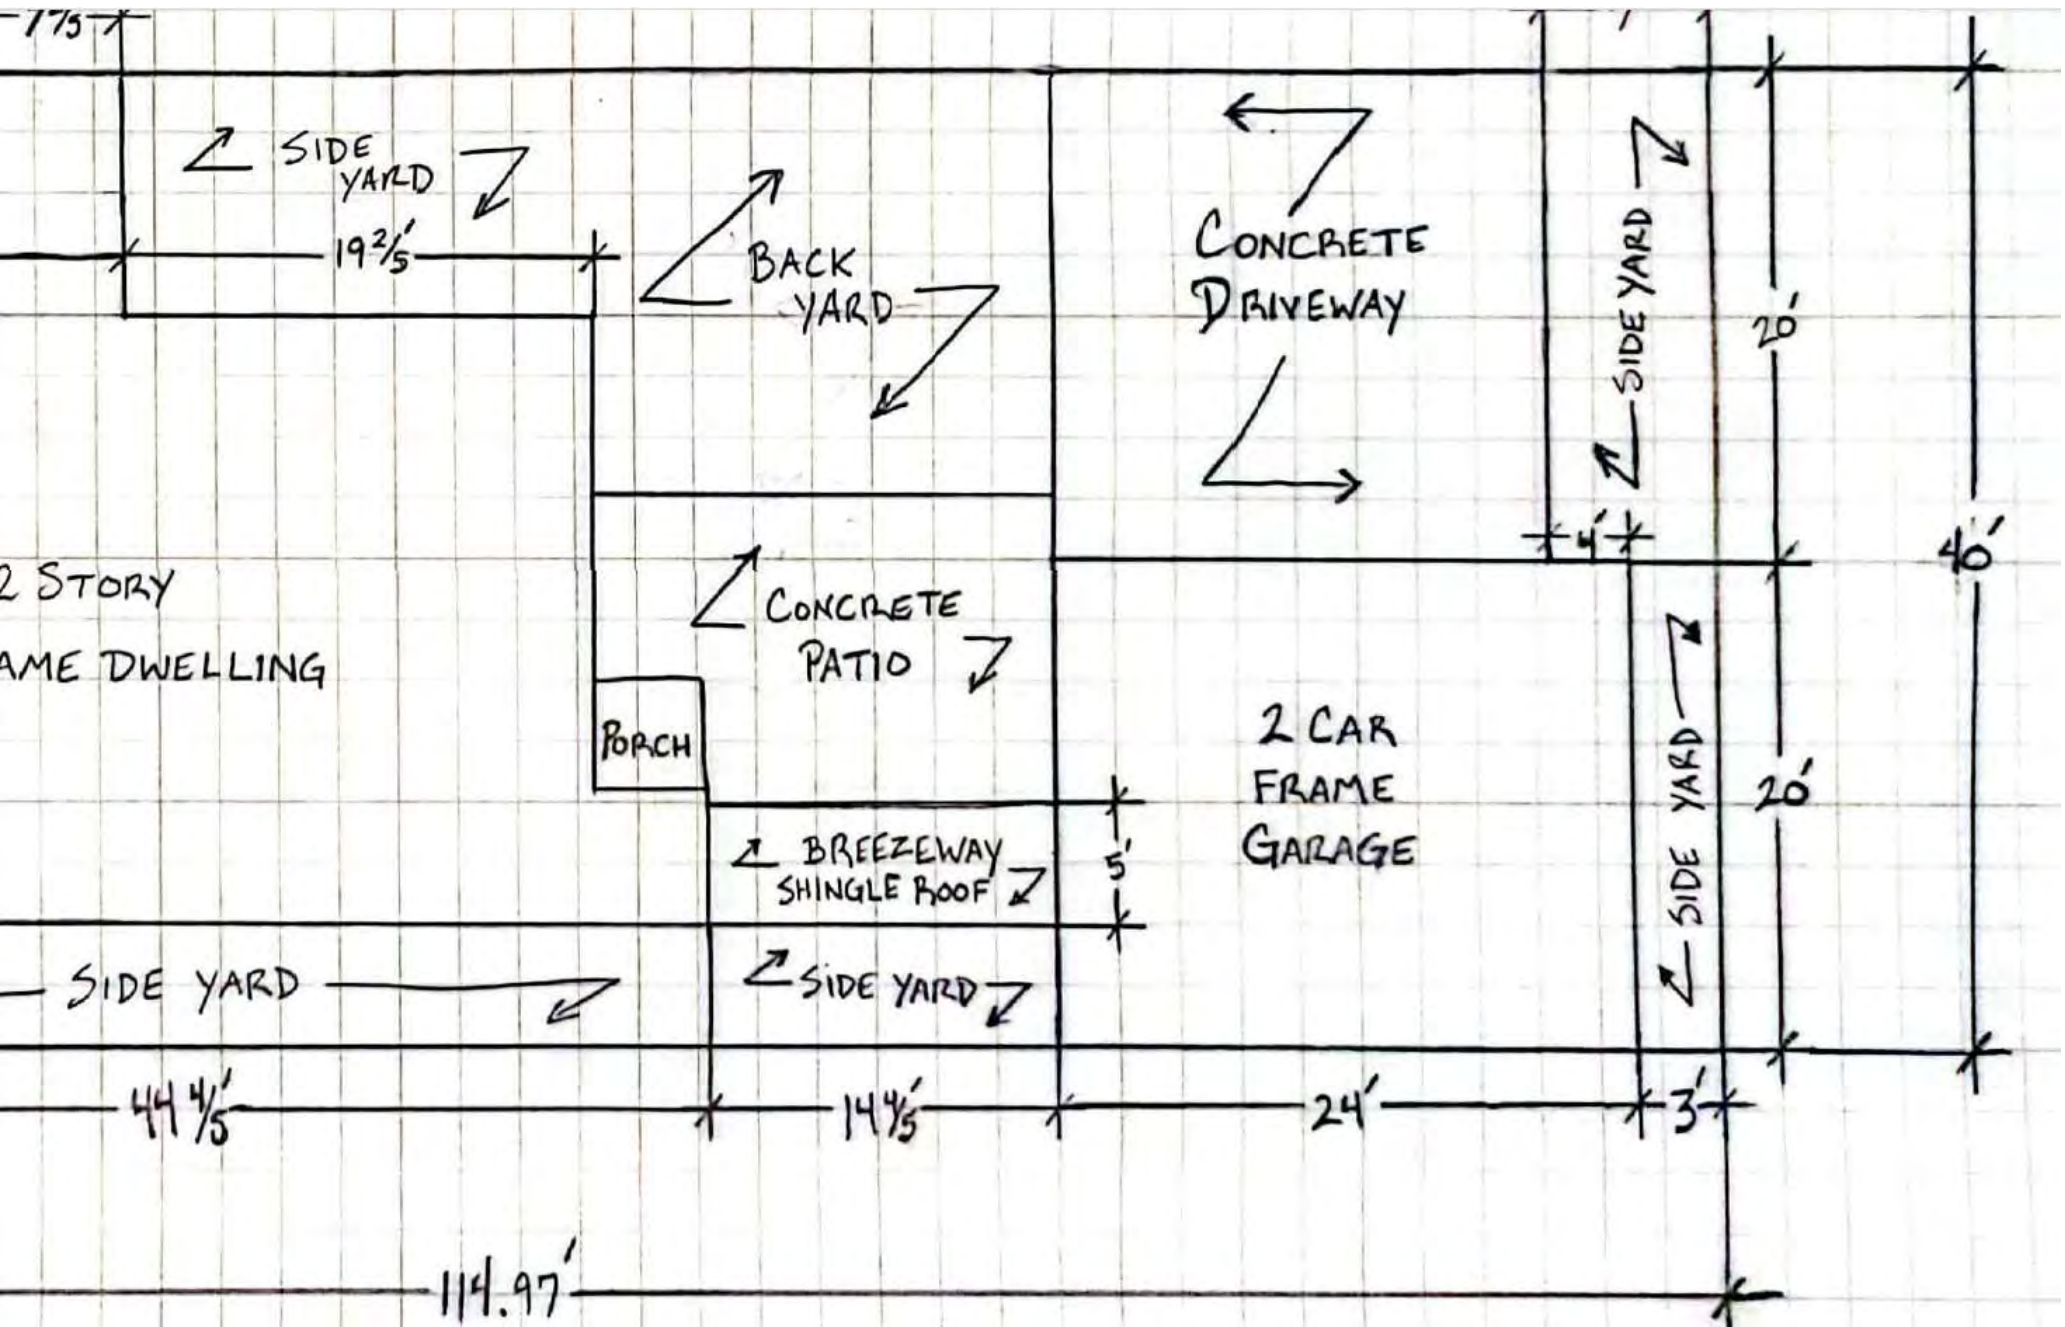 SIDE
YARD
19 2/5'
BACK
YARD
CONCRETE
DRIVEWAY
SIDE YARD
20'
4'
40'
2 STORY
AME DWELLING
CONCRETE
PATIO
PORCH
2 CAR
FRAME
GARAGE
SIDE YARD
20'
BREEZEWAY
SHINGLE ROOF
5'
SIDE YARD
SIDE YARD
44 4/5'
14 4/5'
24'
3'
114.97'